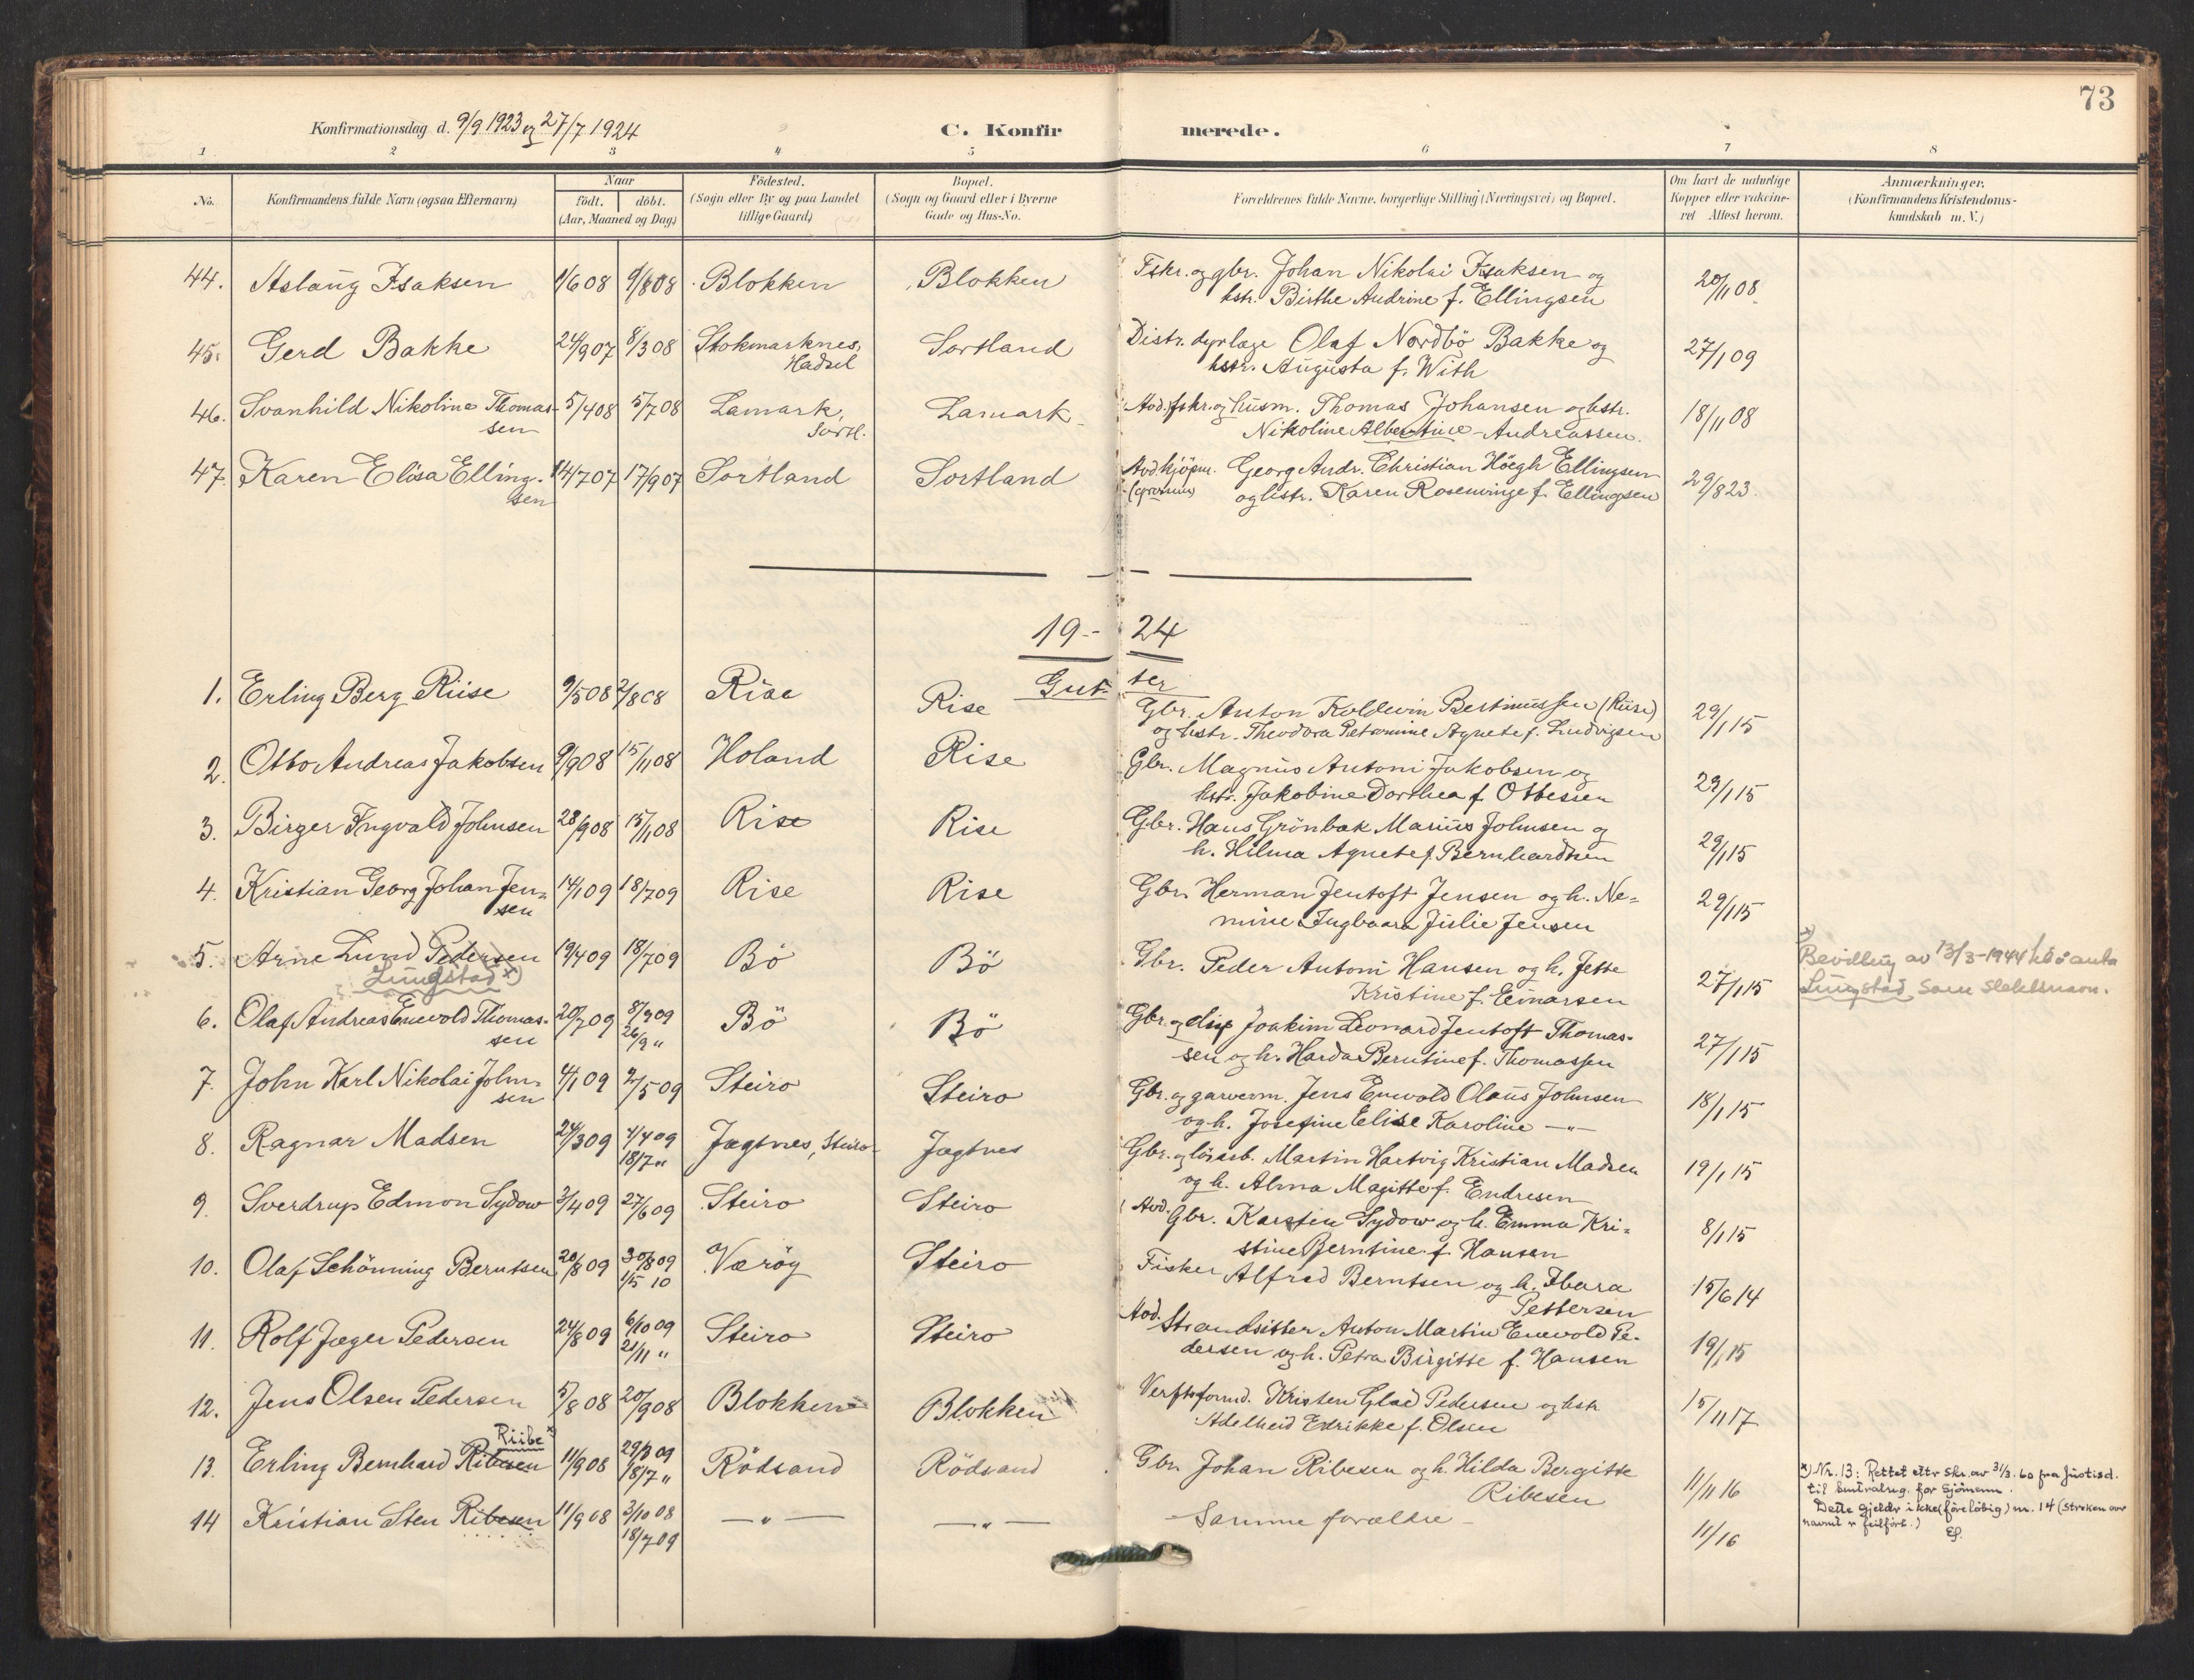 73
Konfirmationsdag d. 9/9 1923 og 27/7 1924
C. Konfirmerede.
1 2 3 4 5 6 7 8
No.
Konfirmandens fulde Navn (ogsaa Efternavn)
Naar
födt. döbt.
(Aar, Maaned og Dag)
Födested.
(Sogn eller By og paa Landet
tillige Gaard)
Bopæl.
(Sogn og Gaard eller i Byerne
Gade og Hus-No.
Forældrenes fulde Navne, borgerlige Stilling (Næringsvei) og Bopæl.
Om havt de naturlige
Kopper eller vakcine-
ret Attest herom.
Anmærkninger.
(Konfirmandens Kristendoms-
kundskab m. V.)
44. Aslaug Isaksen 1/6 08 9/8 08 Blokken Blokken Fskr. og gbr. Johan Nikolai Isaksen og 20/11 08
hstr. Birthe Andrine f. Ellingsen
45. Gerd Bakke 24/9 07 8/3 08 Stokmarknes, Sortland Distr. dyrlæge Olaf Nordbö Bakke og 27/1 09
Hadsel hstr. Augusta f. With
46. Svanhild Nikoline Thomas- 5/4 08 5/7 08 Lamark, Lamark Avd. fskr. og husm. Thomas Johansen og hstr. 18/11 08
sen Sortl. Nikoline Albertine Andreassen.
47. Karen Elisa Elling- 14/7 07 17/9 07 Sortland Sortland Avd kjöpm. Georg Andr. Christian Höegh Ellingsen 29/8 23.
sen og hstr. Karen Rosenvinge f. Ellingsen
19-24
Gutter
1. Erling Berg Riise 9/5 08 2/8 08 Rise Rise Gbr. Anton Koldevin Bertinussen (Riise) 29/1 15
og hstr. Theodora Petromine Agnete f. Ludvigsen
2. Otto Andreas Jakobsen 9/9 08 15/11 08 Holand Rise Gbr. Magnus Antoni Jakobsen og 29/1 15
hstr. Jakobine Dorthea f. Ottesen
3. Birger Ingvald Johnsen 28/9 08 15/11 08 Rise Rise Gbr. Hans Grönbæk Marius Johnsen og 29/1 15
h. Hilma Agnete f. Bernhardtsen
4. Kristian Georg Johan Jen- 14/1 09 18/7 09 Rise Rise Gbr. Herman Jentoft Jensen og h. Ne= 29/1 15
sen mine Ingbaara Julie Jensen
5. Arne Lund Pedersen 19/4 09 18/7 09 Bö Bö Gbr. Peder Antoni Hansen og h. Jette 27/1 15 Bevilling av 13/3-1944 til å anta
Lungstad x) Kristine f. Einarsen Lungstad som slektsnavn.
6. Olaf Andreas Enevold Thomas- 20/7 09 8/9 09 Bö Bö Gbr. og Joakim Leonard Jentoft Thomas- 27/1 15
sen 26/9 " sen og h. Harda Berntine f. Thomassen
7. John Karl Nikolai John- 4/1 09 2/5 09 Steiro Steiro Gbr. og garverm. Jens Enevold Olaus Johnsen 18/1 15
sen og h. Josefine Elise Karoline —"—
8. Ragnar Madsen 24/3 09 4/4 09 Jægtnes, Steiro Jægtnes Gbr. og lösarb. Martin Hartvig Kristian Madsen 19/1 15
18/7 " og h. Alma Magitte f. Endresen
9. Sverdrup Edmon Sydow 3/4 09 27/6 09 Steiro Steiro Avd. Gbr. Karsten Sydow og h. Emma Kri= 8/1 15
stine Berntine f. Hansen
10. Olaf Schönning Berntsen 20/8 09 30/8 09 Værøy Steiro Fisker Alfred Berntsen og h. Ibara 15/6 14
1/5 10 Pettersen
11. Rolf Jæger Pedersen 24/8 09 6/10 09 Steiro Steiro Avd. Strandsitter Anton Martin Enevold Pe- 19/1 15
21/11 " dersen og h. Petra Birgitte f. Hansen
12. Jens Olsen Pedersen 5/8 08 20/9 08 Blokken Blokken Verftsformd. Kristen Glad Pedersen og hstr 15/11 17
Adelheid Edrikke f. Olsen
Riibe x
13. Erling Bernhard Ribesen 11/9 08 29/3 09 Rödsand Rödsand Gbr. Johan Ribesen og h. Hilda Bergitte 11/11 16 x) Nr. 13: Rettet etter skr. av 31/3. 60 fra Justisd.
18/7 " Ribesen til sentralreg. for sjömenn.
14 Kristian Sten Ribesen 11/9 08 3/10 08 —"— —"— Samme forældre 11/16 Dette gjelder ikke (foreløbig) nr. 14 (streken over
18/7 09 navnet er feilført.)